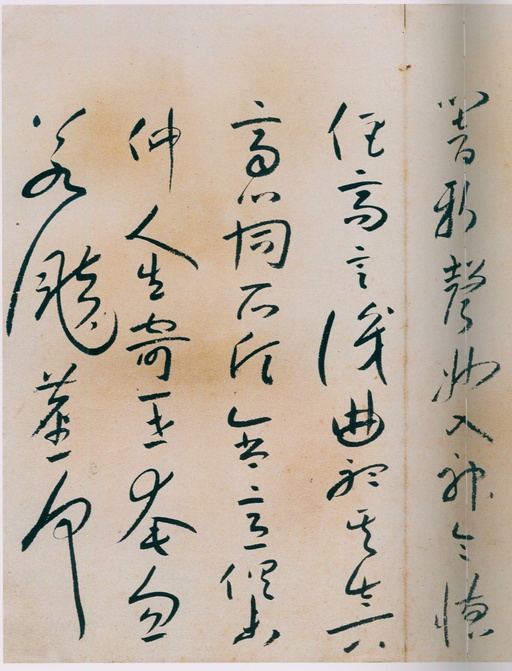 響新聲妙入神令德
倡高言識曲聽其真
齊心同所願含意俱未
伸人生寄一世奄忽
若飆塵何